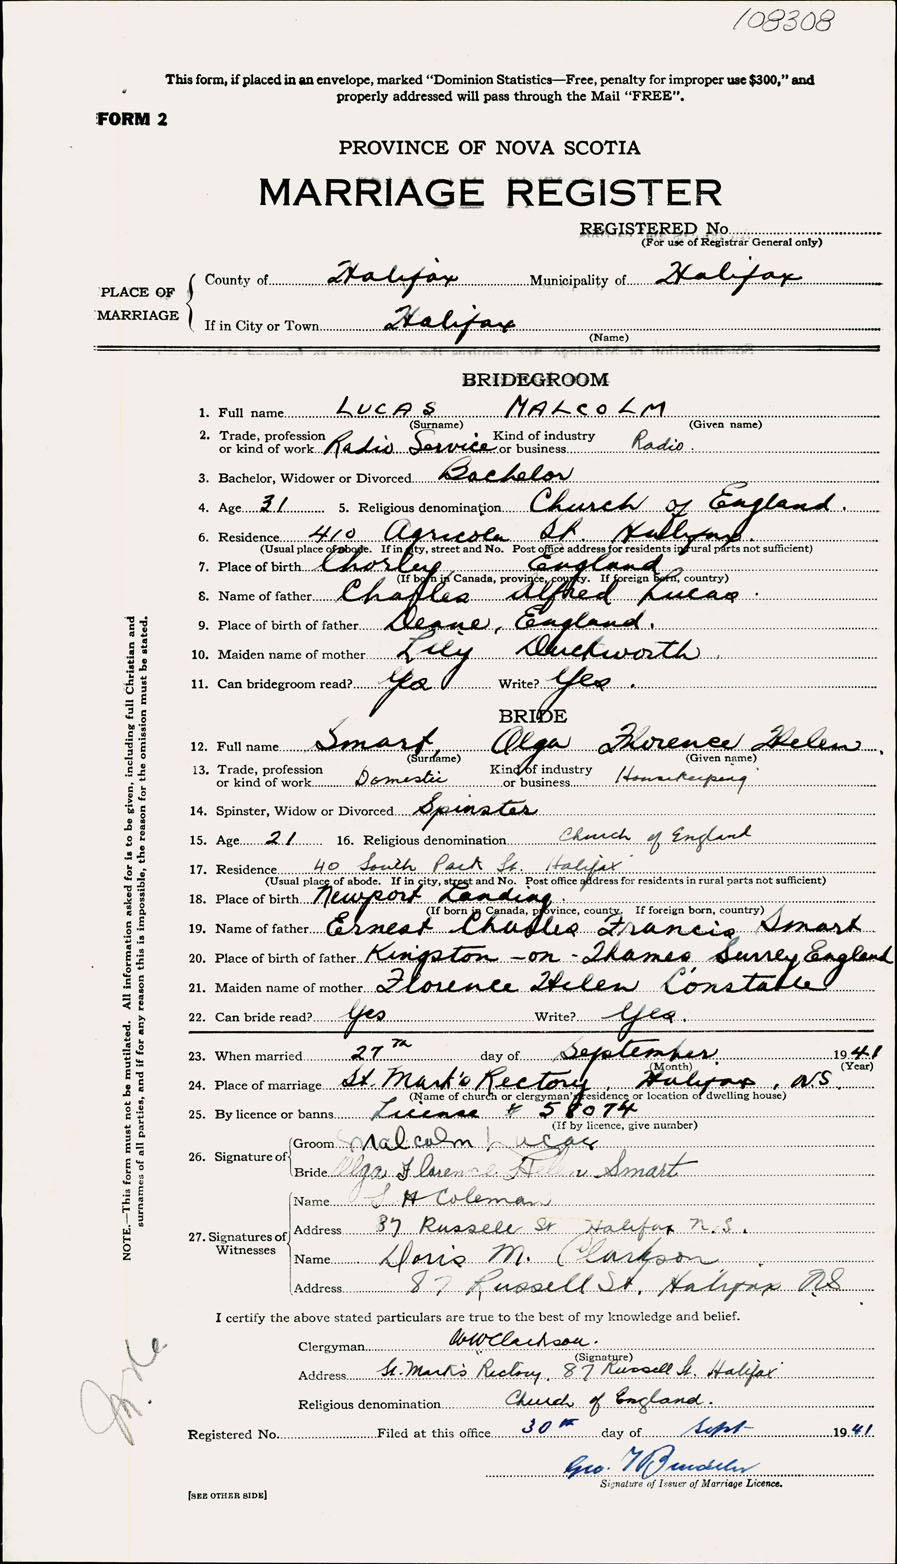 108308
This form, if placed in an envelope, marked “Dominion Statistics—Free, penalty for improper use $300,” and
properly addressed will pass through the Mail “FREE”.
FORM 2
PROVINCE OF NOVA SCOTIA
MARRIAGE REGISTER
REGISTERED No.
(For use of Registrar General only)
PLACE OF MARRIAGE
County of Halifax Municipality of Halifax
If in City or Town Halifax
(Name)
BRIDEGROOM
1. Full name LUCAS MALCOLM
(Surname) (Given name)
2. Trade, profession or kind of work Radio Service Kind of industry or business Radio.
3. Bachelor, Widower or Divorced Bachelor
4. Age 31 5. Religious denomination Church of England.
6. Residence 410 Agricola St. Halifax.
(Usual place of abode. If in city, street and No. Post office address for residents in rural parts not sufficient)
7. Place of birth Chorley, England
(If born in Canada, province, county. If foreign born, country)
8. Name of father Charles Alfred Lucas.
9. Place of birth of father Deane, England.
10. Maiden name of mother Lily Duckworth
11. Can bridegroom read? Yes Write? Yes.
BRIDE
12. Full name Smart, Olga Florence Helen.
(Surname) (Given name)
13. Trade, profession or kind of work Domestic Kind of industry or business Housekeeping
14. Spinster, Widow or Divorced Spinster
15. Age 21 16. Religious denomination Church of England
17. Residence 40 South Park St. Halifax
(Usual place of abode. If in city, street and No. Post office address for residents in rural parts not sufficient)
18. Place of birth Newport Landing.
(If born in Canada, province, county. If foreign born, country)
19. Name of father Ernest Charles Francis Smart
20. Place of birth of father Kingston-on-Thames Surrey England
21. Maiden name of mother Florence Helen Constable
22. Can bride read? Yes Write? Yes.
23. When married 27th day of September 1941
(Month) (Year)
24. Place of marriage St. Mark's Rectory, Halifax, N.S.
(Name of church or clergyman's residence or location of dwelling house)
25. By licence or banns License # 58074
(If by licence, give number)
26. Signature of
Groom Malcolm Lucas
Bride Olga Florence Helen Smart
27. Signatures of Witnesses
Name H Coleman
Address 87 Russell St Halifax N.S.
Name Doris M. Clarkson
Address 87 Russell St. Halifax NS
I certify the above stated particulars are true to the best of my knowledge and belief.
Clergyman WW Clarkson.
(Signature)
Address St. Mark's Rectory, 87 Russell St. Halifax
Religious denomination Church of England.
Registered No. Filed at this office 30th day of Sept 1941
Geo.
Signature of Issuer of Marriage Licence.
[SEE OTHER SIDE]
NOTE.—This form must not be mutilated. All information asked for is to be given, including full Christian and
surnames of all parties, and if for any reason this is impossible, the reason for the omission must be stated.